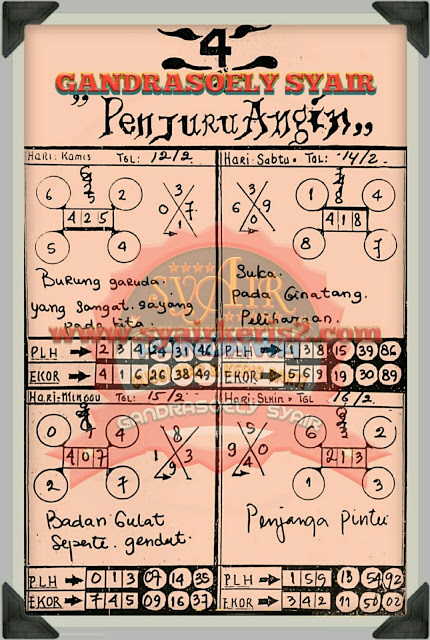 4
GANDRASOELY SYAIR
"Penjuru Angin„
Hari: Kamis TGL: 12/2
6 2
4 2 5
5 4
3
0 7
1
Burung garuda.
yang sangat. sayang
pada kita
PLH → 2 3 4 24 31 46
EKOR → 4 1 6 26 38 49
Hari: Sabtu. TGL: 14/2
1 4
4 1 8
8 7
3
6 9
0
Suka.
Pada Binatang.
Peliharaan.
PLH → 1 3 8 15 39 86
EKOR → 5 6 9 19 30 89
SYAIR
www.syairkeris2.com
GANDRASOELY SYAIR
Hari: Minggu TGL: 15/2
0 4
4 0 7
2 7
8
1 3
9
Badan Gulat
Seperti. gendut.
PLH → 0 1 3 07 14 35
EKOR → 7 4 5 09 16 37
Hari: Senin. TGL 16/2
6 2
2 1 3
1 3
5
9 0
4
Penjaga pintu
PLH → 1 5 9 13 54 92
EKOR → 3 4 2 11 50 02